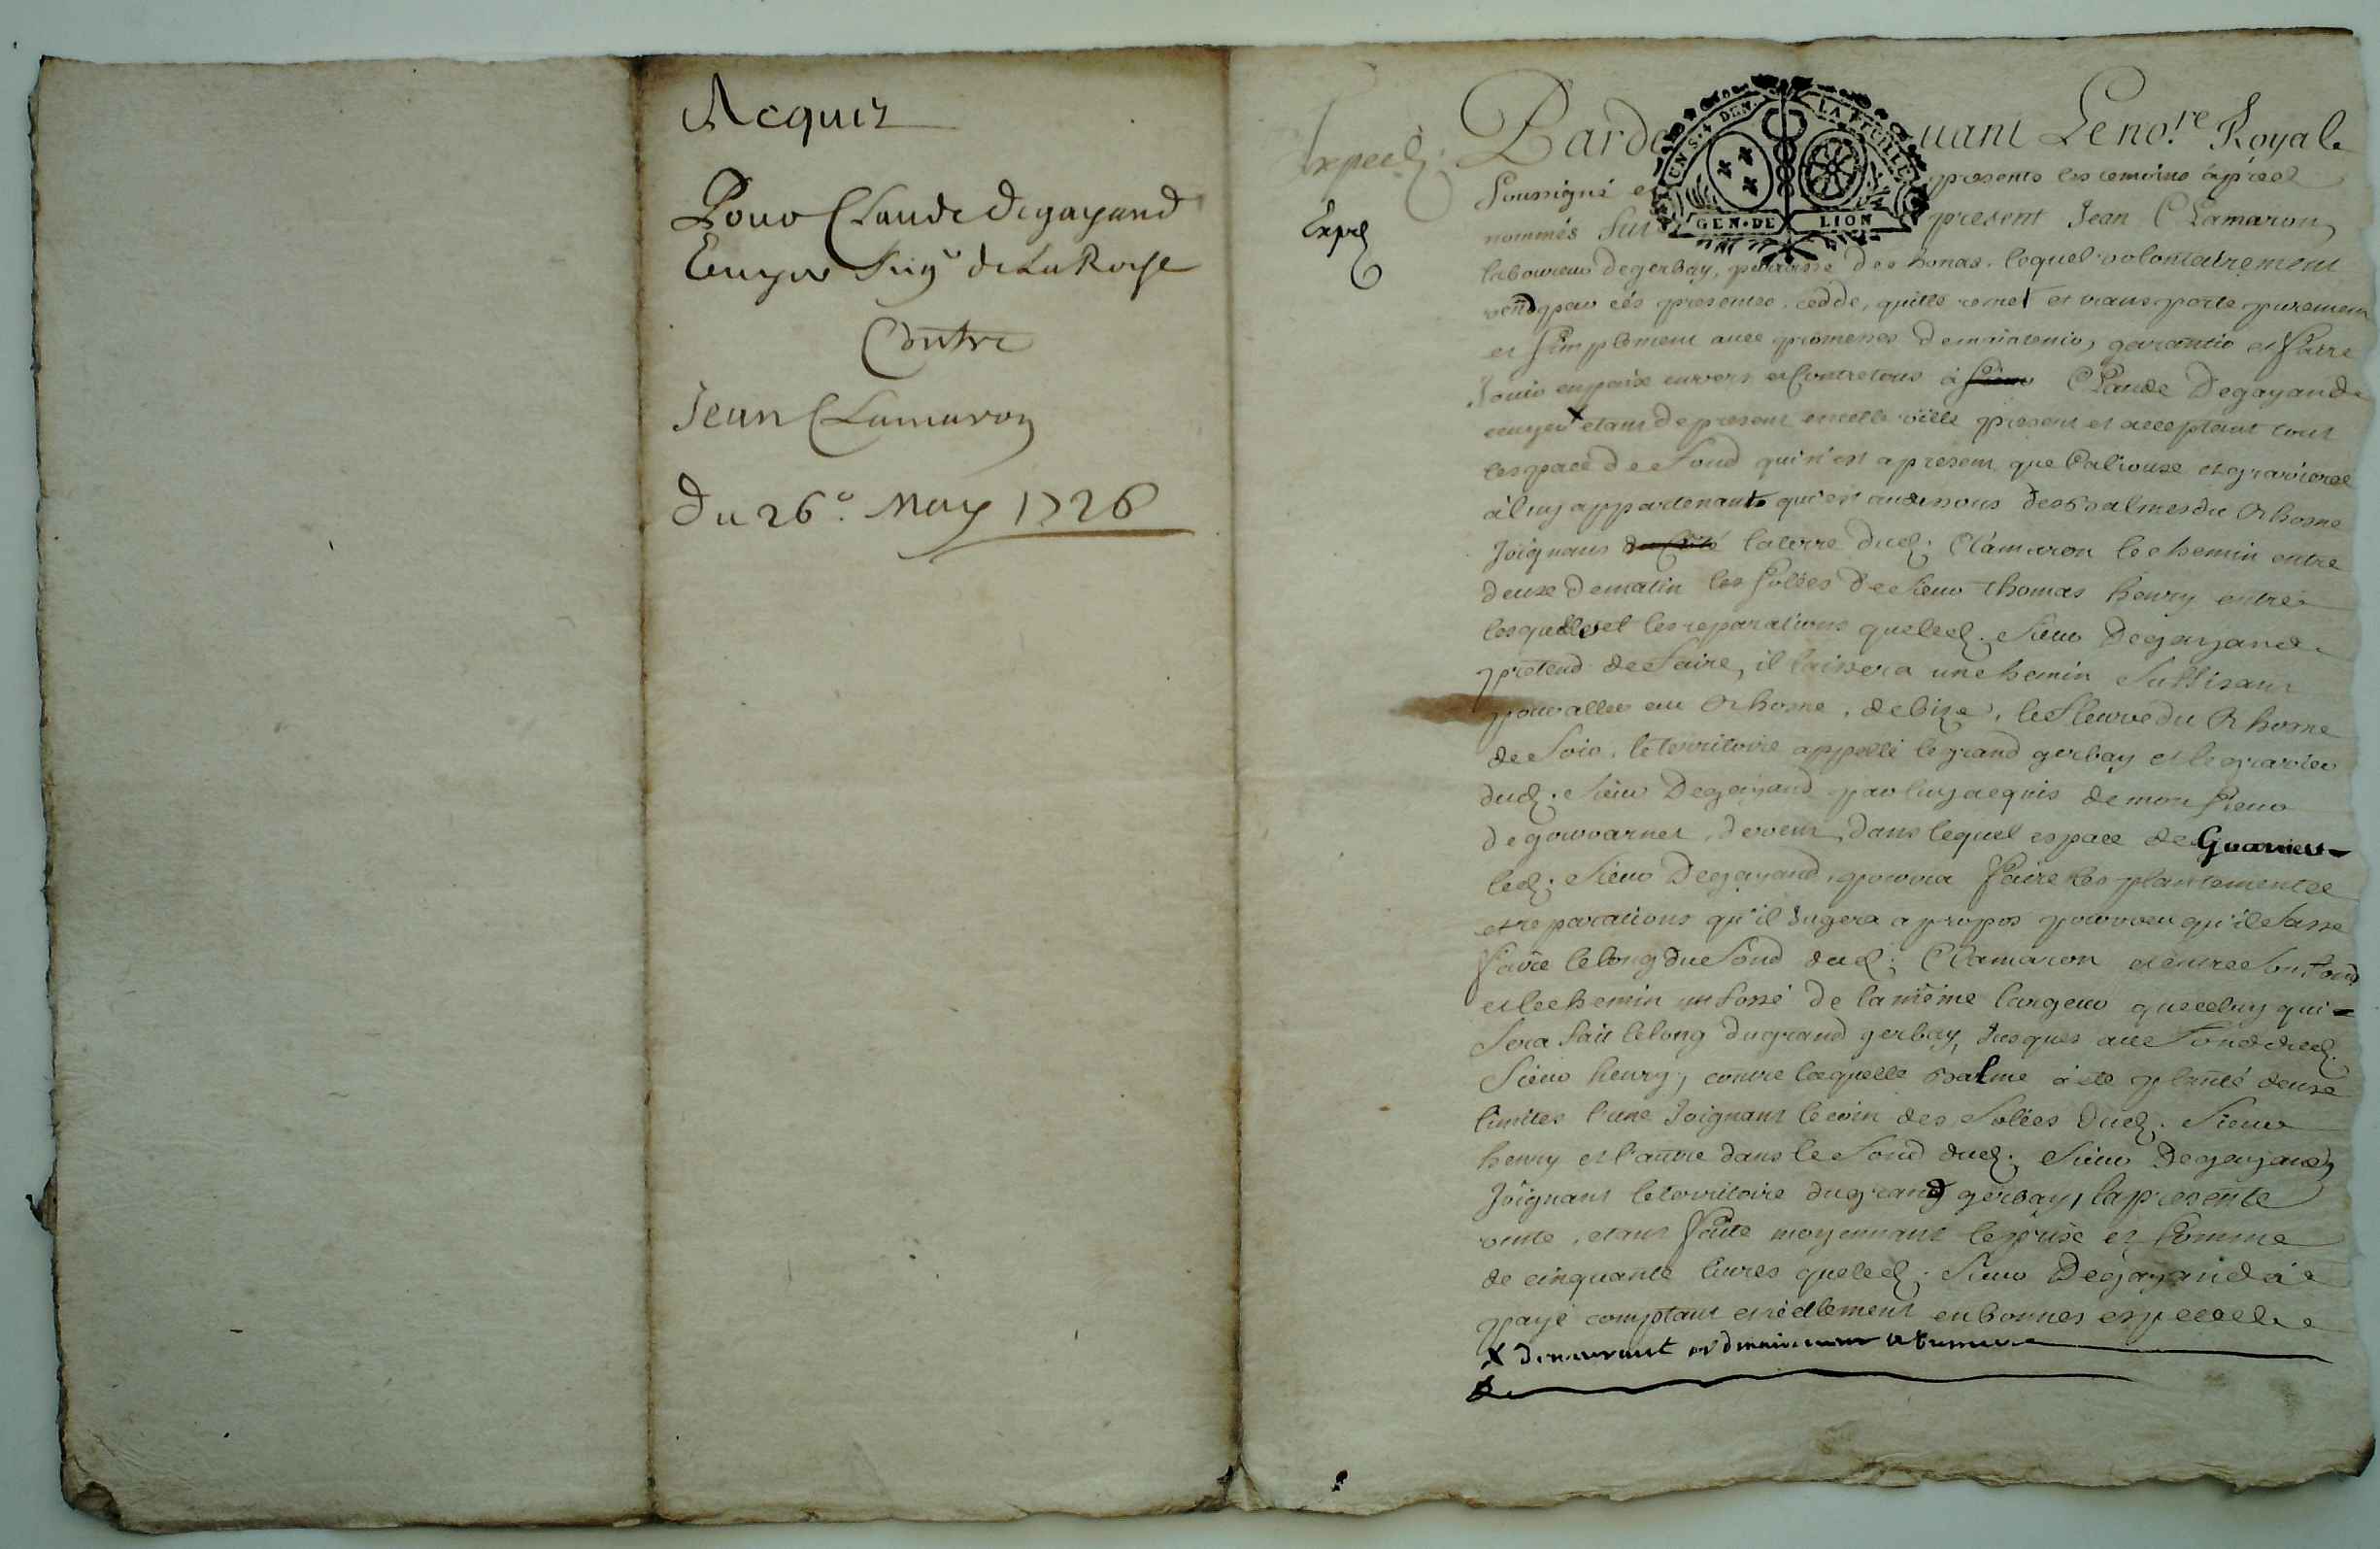 Acquis
Pour Claude Degayand
Ecuyer Seigr de La Rorge
Contre
Jean Clamaron
du 26e. May 1726
Expedi.
Exped
Pardeuant Le no.re Royal
CIN. S. 4 DEN. LA FEUILLE
GEN. DE LION
Soussigné et presents les temoins apres
nommés fut present Jean Clamaron
laboureur de gerbay, paroisse de chonas, lequel volontairement
vend par ces presentes, cedde, quitte remet et transporte purement
et simplement auec promesses de maintenir, garantir et faire
Jouir en paix envers et Contre tous à Claude Degayand
ecuyer x etant de present en cette ville present et acceptant tout
lespace de fond qui n'est a present que Caliouse et gravieres
à luy appartenants qui est au dessous des Balmes du Rhosne
Joignant la terre dud. Clamaron le chemin entre
deux de matin les follées de sieur thomas henry entre
lesquelles et les reparations que led. sieur Degayand
pretend de faire, il laissera un chemin suffisant
pour aller au Rhosne, de bize, le fleuve du Rhosne
de soir, le territoire appellé le grand gerbay et le gravier
dud. sieur Degayand par luy acquis de monsieur
de gouvarnet, de vent, dans lequel espace de Gravier
led. sieur Degayand, pourra faire les plantements
et reparations qu'il Jugera a propos pourveu qu'il fasse
faire le long du fond dud. Clamaron et entre son fond
et le chemin un fossé de la même largeur que celuy qui
sera fait le long du grand gerbay, Jusques au fond dud.
sieur henry, contre laquelle Balme a été planté deux
limites l'une Joignant le coin des follées dud. sieur
henry et l'autre dans le fond dud. sieur Degayand
Joignant le territoire du grand gerbay, la presente
vente, etant faite moyennant le prix et somme
de cinquante livres que led. sieur Degayand a
payé comptant et réellement en bonnes especes
x demeurant ordinairement a